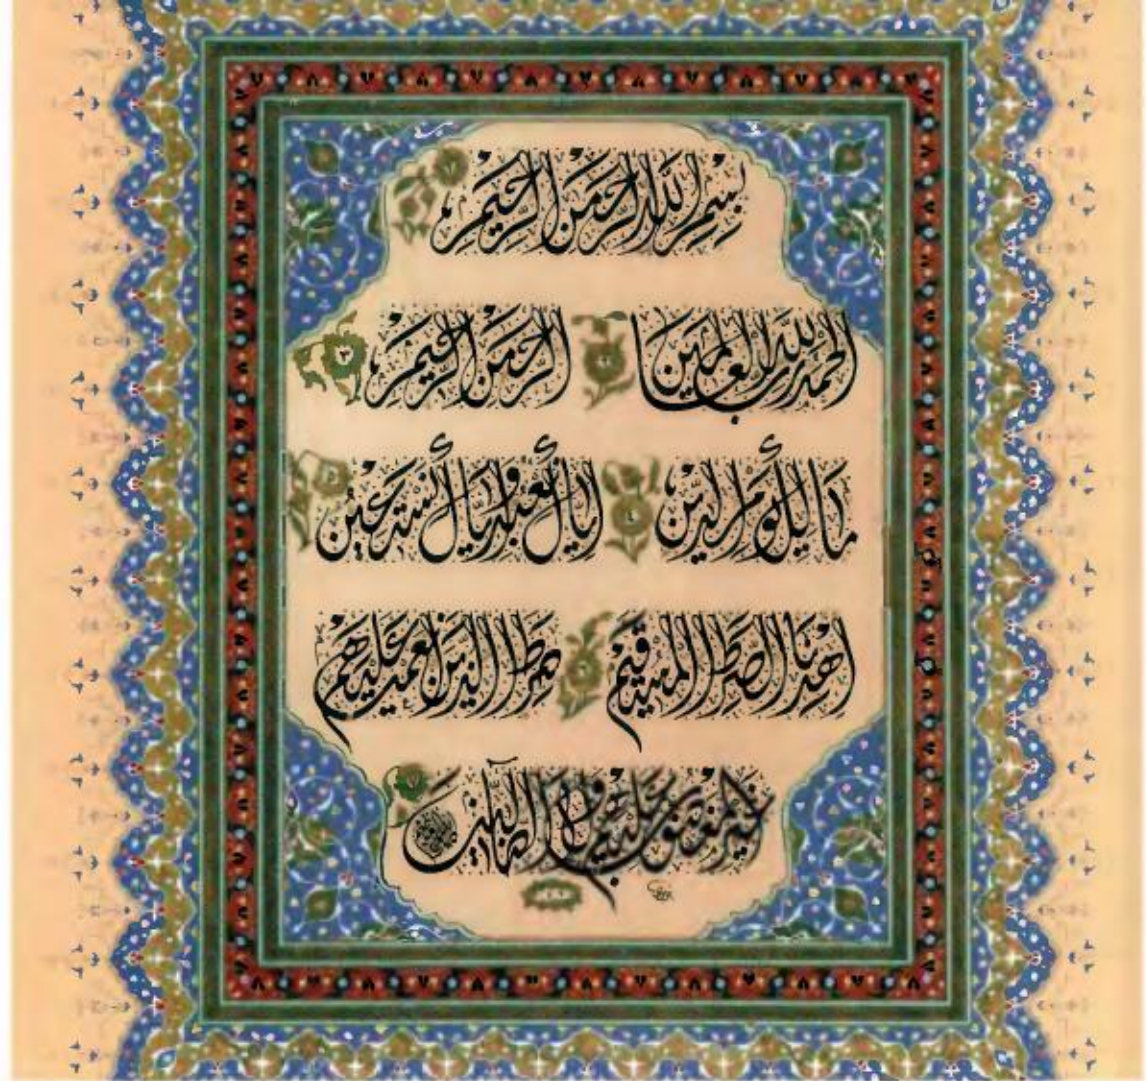 بسم الله الرحمن الرحيم ١
الحمد لله رب العالمين ٢ الرحمن الرحيم ٣
مالك يوم الدين ٤ إياك نعبد وإياك نستعين ٥
اهدنا الصراط المستقيم ٦ صراط الذين أنعمت عليهم
غير المغضوب عليهم ولا الضالين